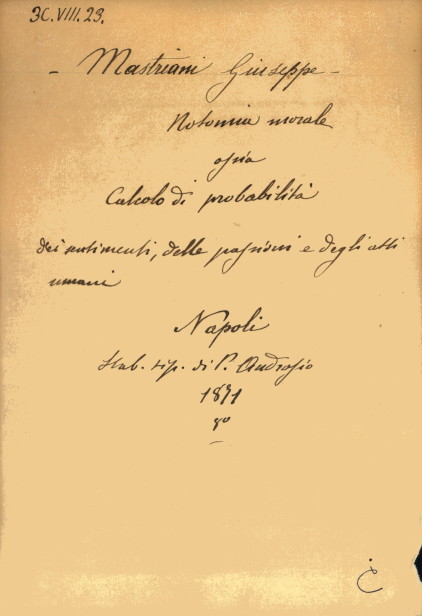 3C.VIII.23.
- Mastriani Giuseppe -
Notomia morale
ossia
Calcolo di probabilità
dei sentimenti, delle passioni e degli atti
umani
Napoli
Stab. tip. di P. Androsio
1871
8º